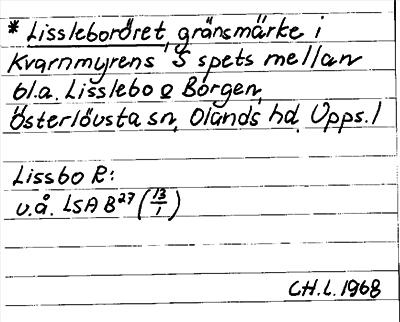 * Lissleboröret, gränsmärke i
Kvarnmyrens S spets mellan
bl.a. Lisslebo o Borgen,
Österlövsta sn, Olands hd, Upps. l
Lissbo R:
u.å. LSA B²⁷ (13/1)
CH.L. 1968